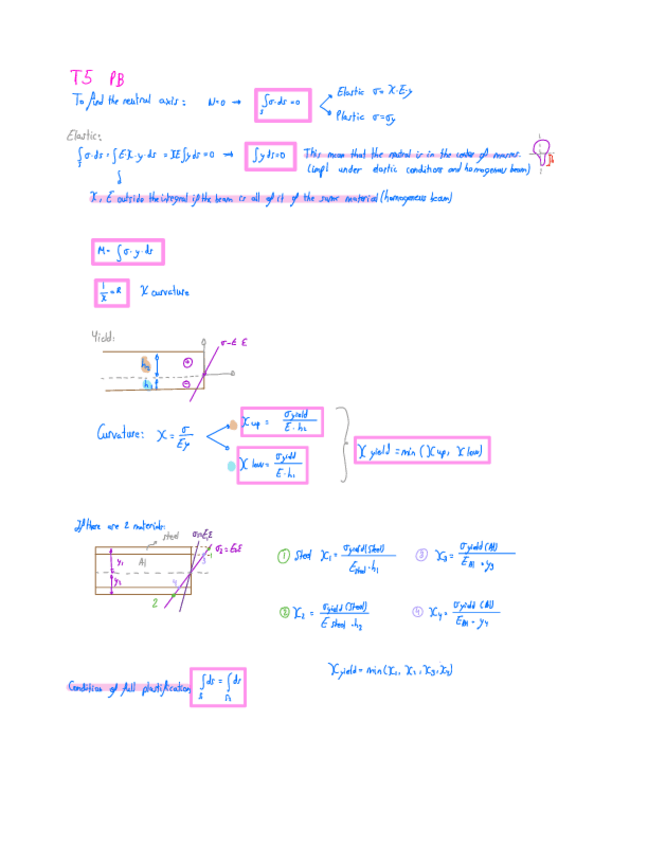 T5 PB
To find the neutral axis: N=0 → ∫σ·ds=0
Elastic σ= χ·E·y
Plastic σ=σy
Elastic:
∫σ·ds = ∫E·χ·y·ds = χE∫y ds = 0 → ∫y ds=0
This mean that the neutral is in the center of masses.
(only under elastic conditions and homogenous beam)
χ, E outside the integral if the beam is all of it of the same material (homogeneous beam)
M= ∫σ·y·ds
1/χ = R χ curvature
Yield:
σ-E E
h2
h1
Curvature: χ = σ/Ey
χ up = σyield/E·h2
χ low = σyield/E·h1
χ yield = min (χ up, χ low)
If there are 2 materials:
steel
Al
y1
y2
σ2=E2E
2
4
3
1
① Steel χ1 = σyield(Steel)/Esteel·h1
③ χ3 = σyield(Al)/EAl·y3
② χ2 = σyield(Steel)/E steel·h2
④ χ4 = σyield(Al)/EAl·y4
χyield = min(χ1, χ2, χ3, χ4)
Condition of full plastification ∫ds = ∫ds